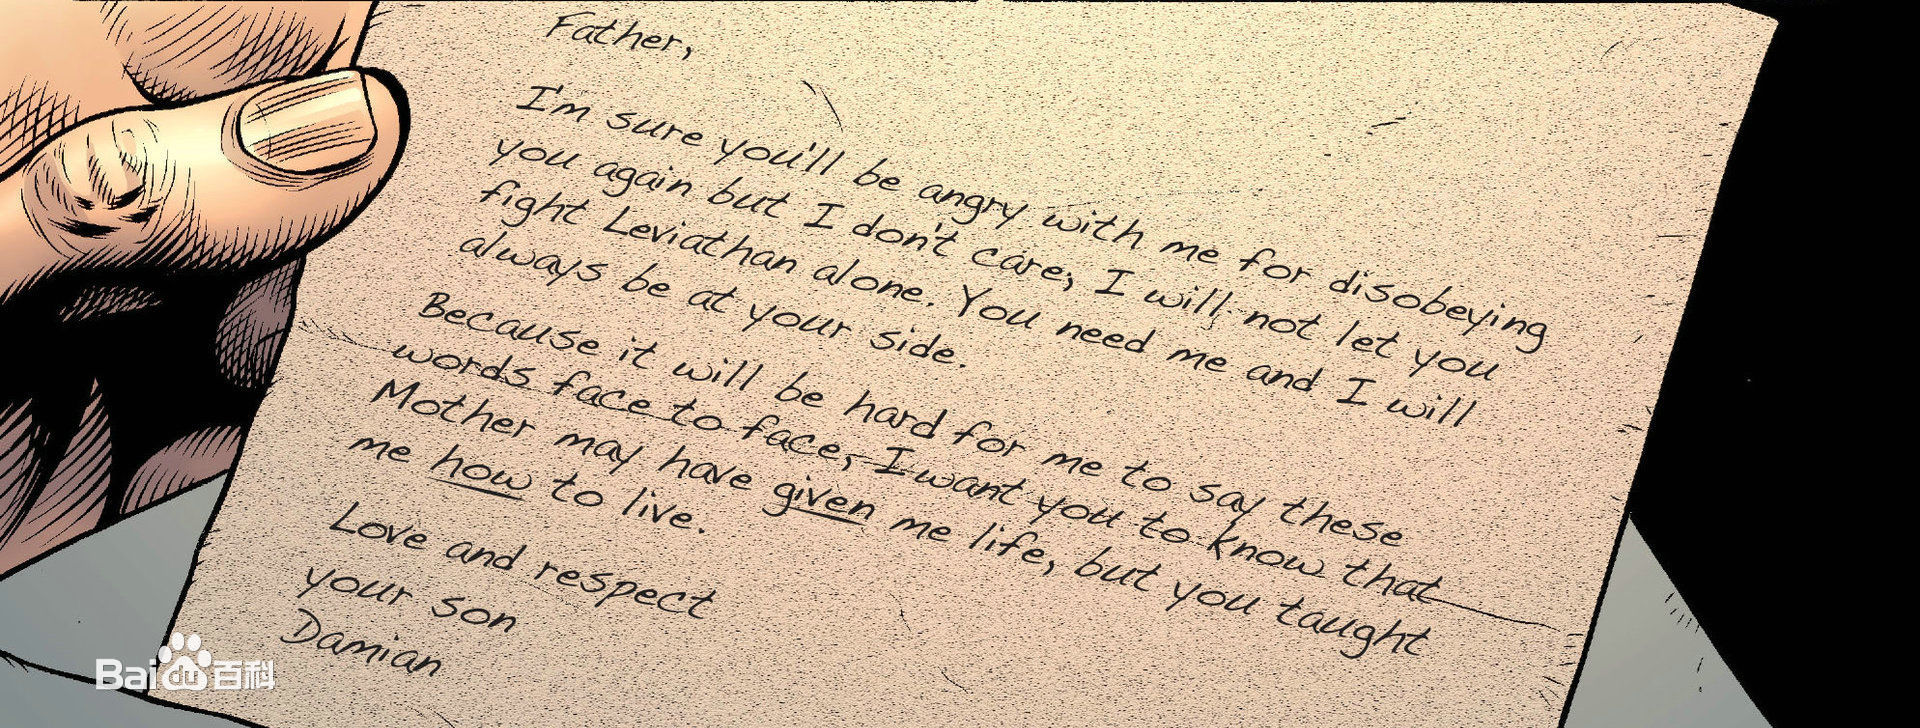 Father,
I'm sure you'll be angry with me for disobeying
you again but I don't care; I will not let you
fight Leviathan alone. You need me and I will
always be at your side.
Because it will be hard for me to say these
words face to face, I want you to know that
Mother may have given me life, but you taught
me how to live.
Love and respect
your son
Damian
Baidu百科